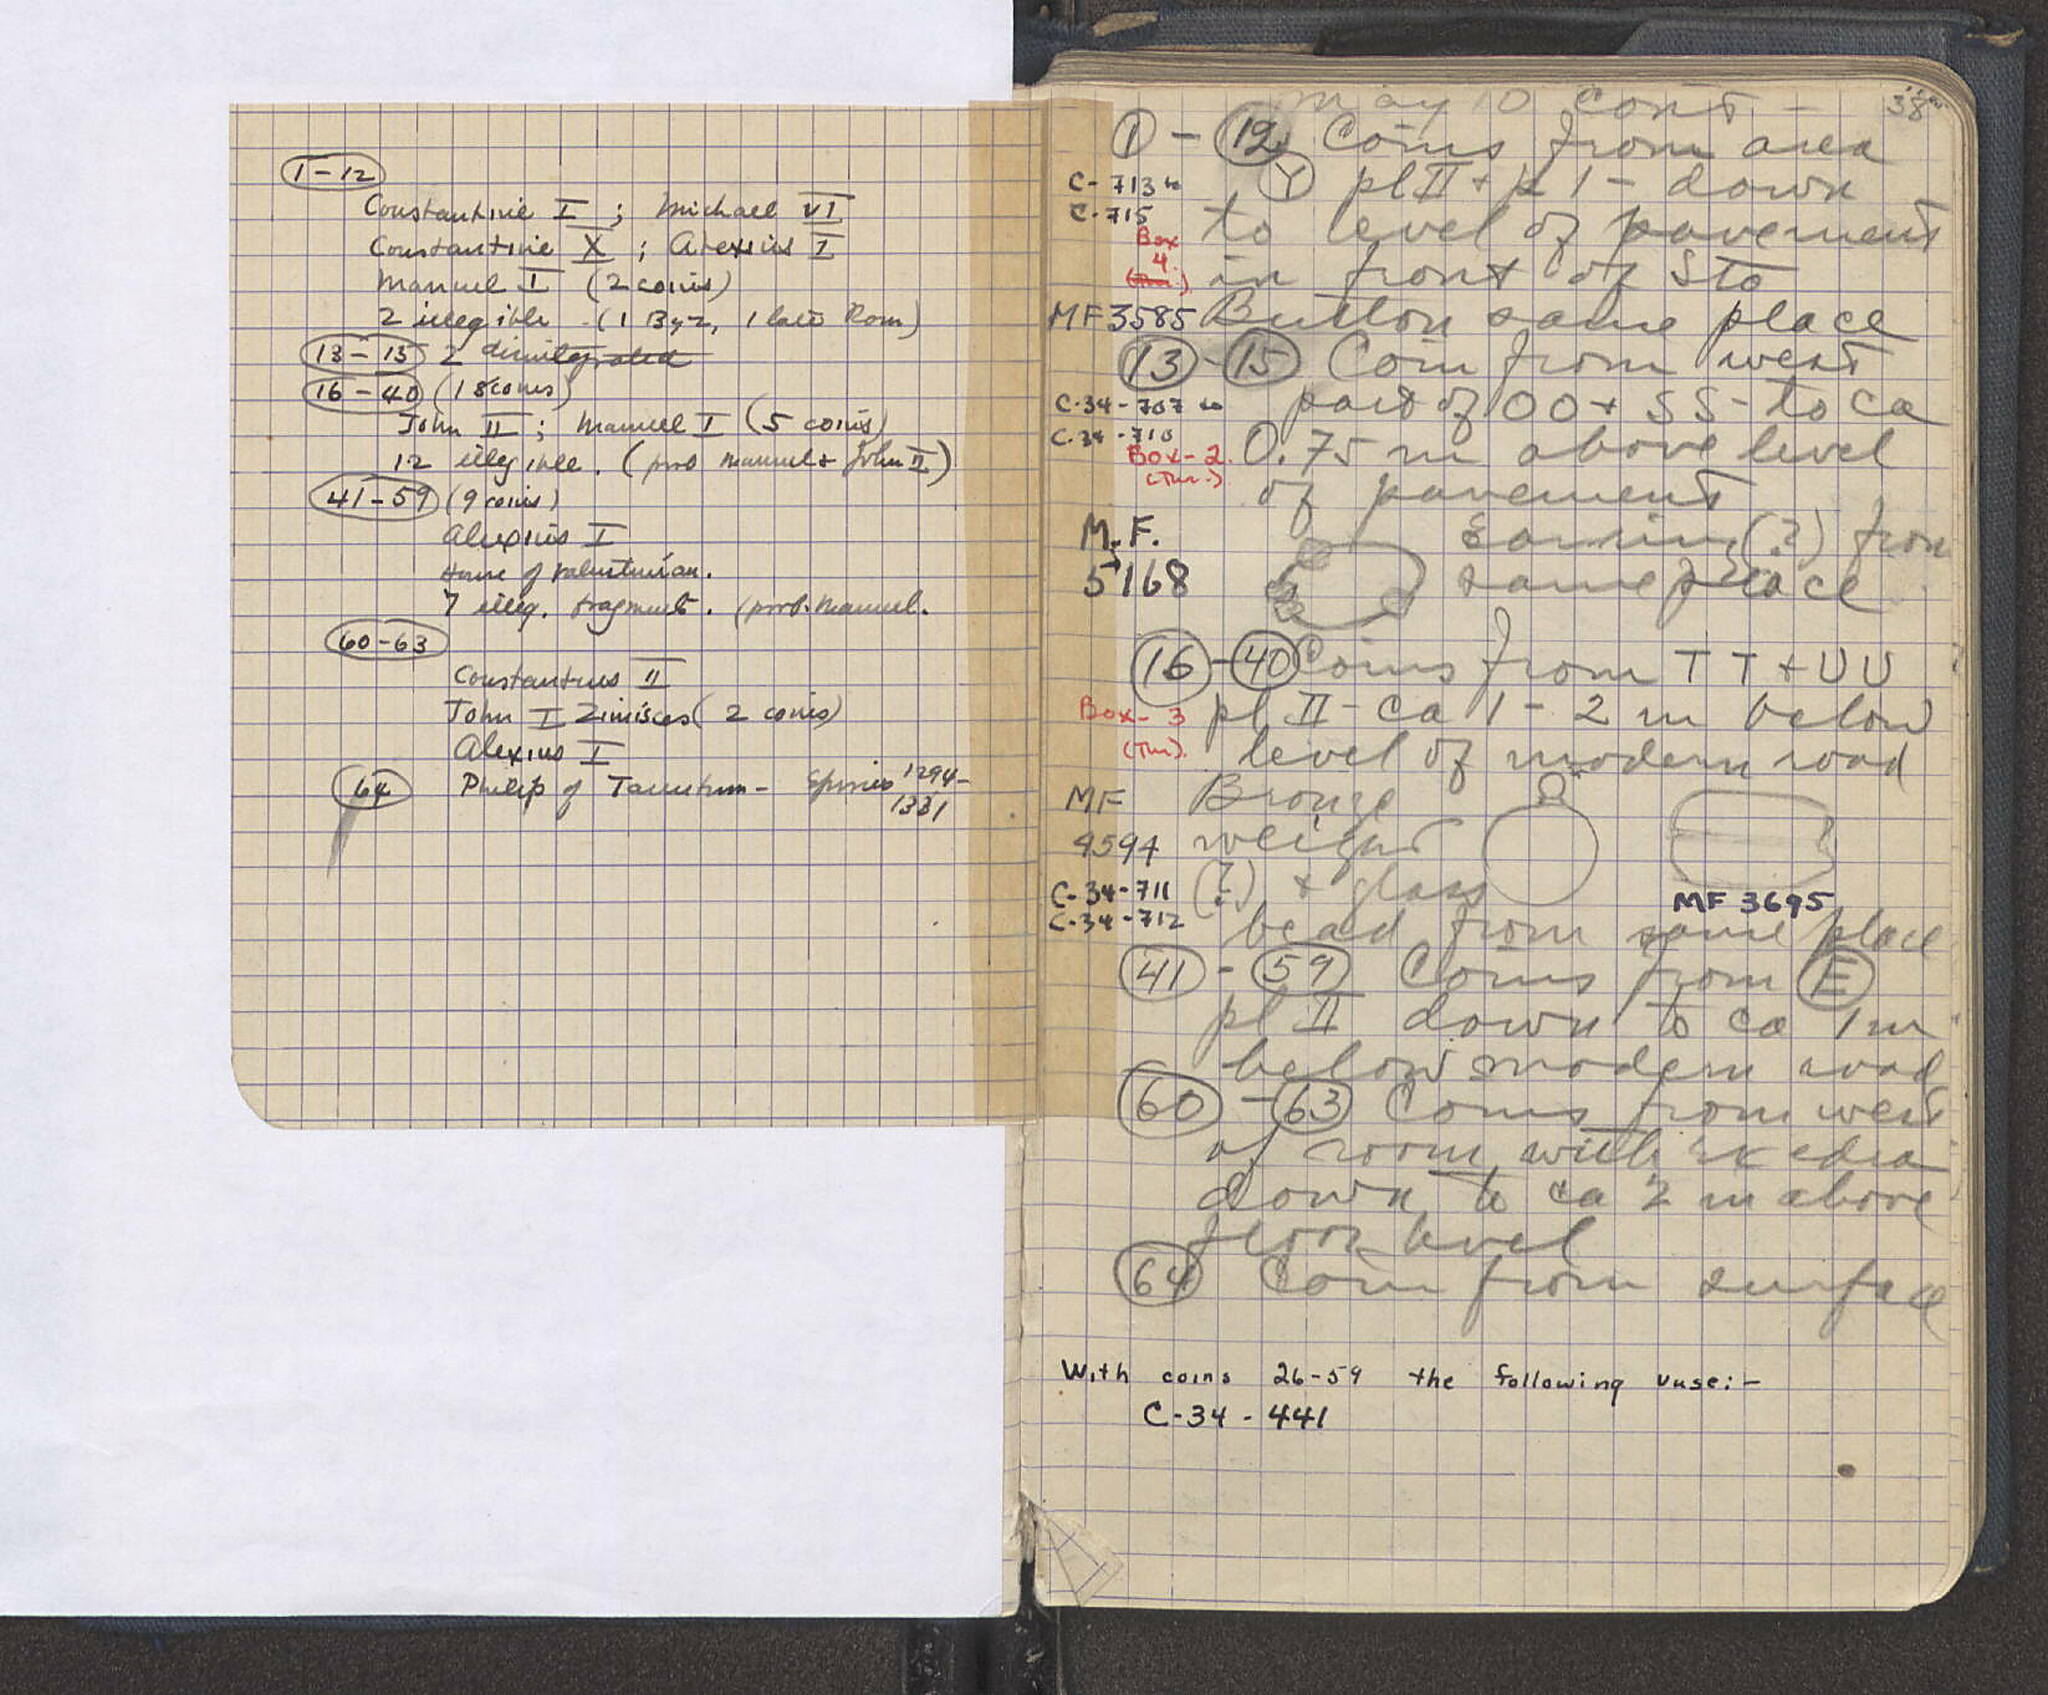 1-12
Constantine I ; Michael VI
Constantine X ; Alexius I
Manuel I (2 coins)
2 illegible (1 Byz, 1 late Rom)
13-15 2 disintegrated
16-40 (18 coins)
John II ; Manuel I (5 coins)
12 illegible. (prob Manuel + John II)
41-59 (9 coins)
Alexius I
House of Valentinian.
7 illeg. fragments. (prob. Manuel.
60-63
Constantius II
John I Zimisces (2 coins)
Alexius I
64 Philip of Tarentum - Epirus 1294-
1331
May 10 cont - 38
1 - 12 Coins from area
C-713 to Y pl II + 1 - down
C-715 to level of pavement
Box 4. in front of Sto
MF 3585 Button same place
13 - 15 Coin from west
C-34-707 to part of OO + SS - to ca
C-34-710 0.75 m above level
Box-2. (Thr.) of pavement
M.F. Earring (?) from
5168 same place
16 - 40 Coins from TT + UU
Box-3 pl II - ca 1-2 m below
(Thr). level of modern road
MF Bronze
9594 weight
C-34-711 (?) + glass MF 3695
C-34-712 bead from same place
41 - 59 Coins from E
pl II down to ca 1 m
below modern road
60 - 63 Coins from west
of room with exedra
down to ca 2 m above
floor level
64 Coin from surface
With coins 26-59 the following vase:-
C-34-441